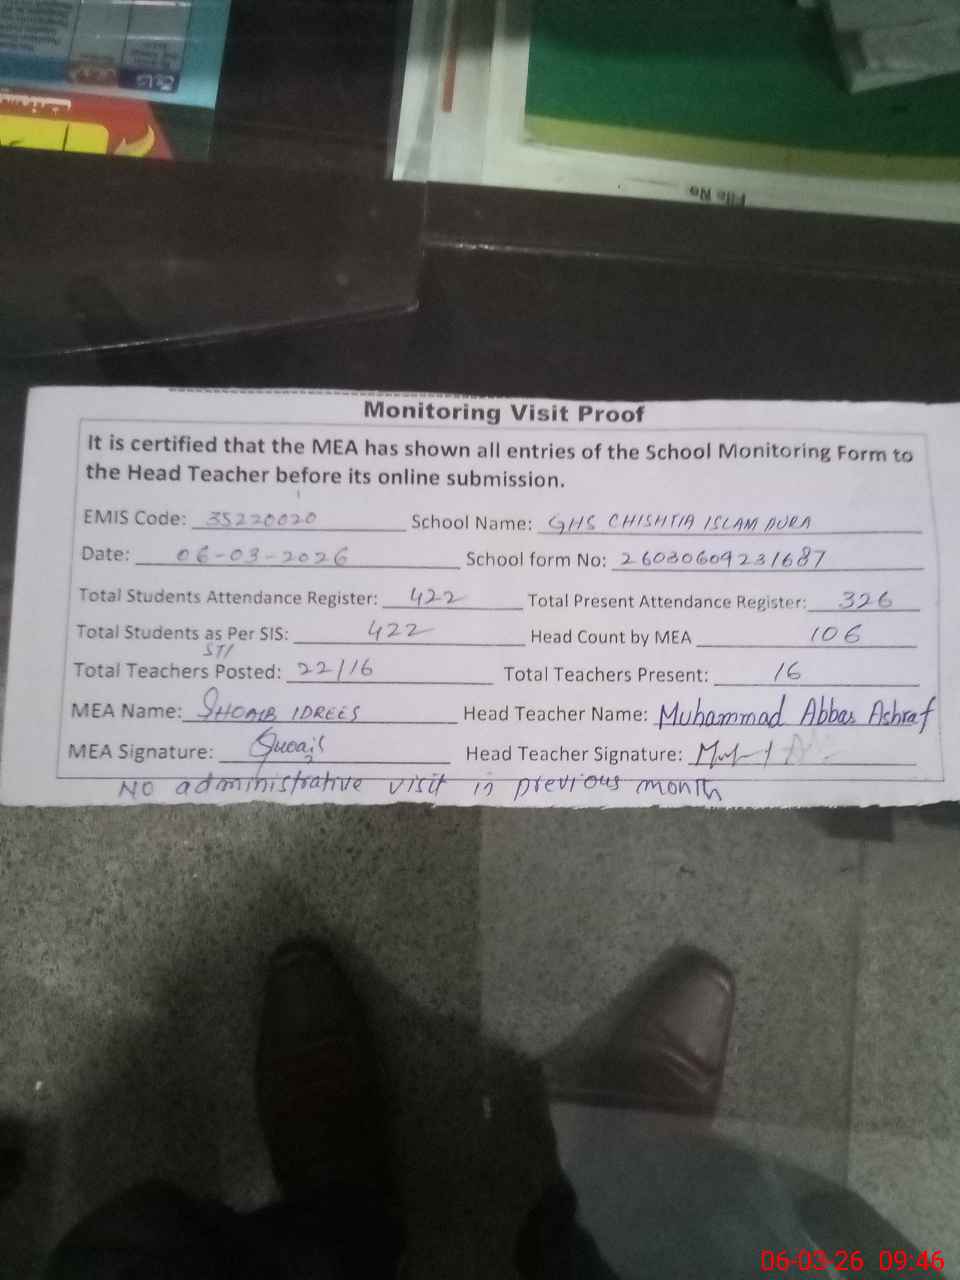 File No
Monitoring Visit Proof
It is certified that the MEA has shown all entries of the School Monitoring Form to
the Head Teacher before its online submission.
EMIS Code: 35220020 School Name: GHS CHISHTIA ISLAM PURA
Date: 06-03-2026 School form No: 26030609231687
Total Students Attendance Register: 422 Total Present Attendance Register: 326
Total Students as Per SIS: 422 Head Count by MEA 106
STI
Total Teachers Posted: 22/16 Total Teachers Present: 16
MEA Name: SHOAIB IDREES Head Teacher Name: Muhammad Abbas Ashraf
MEA Signature: Head Teacher Signature:
NO administrative visit in previous month
06-03-26 09:46